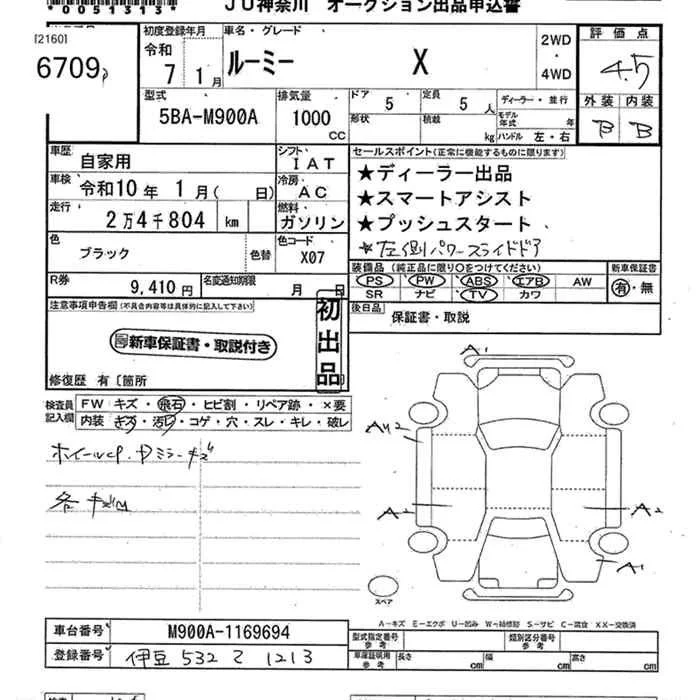 *0051313*
JU神奈川 オークション出品申込書
[2160]
6709
初度登録年月
令和
7 1月
車名・グレード
ルーミー X
2WD
・
4WD
評価点
4.5
外装 内装
B B
型式
5BA-M900A
排気量
1000
CC
ドア
5
定員
5 人
ディーラー・並行
形状
積載
kg
モデル年式 年
ハンドル 左・右
車歴
自家用
シフト
IAT
車検
令和10年 1月( 日)
冷房
AC
走行
2万4千804 km
燃料
ガソリン
色
ブラック
色替
色コード
X07
R券
9,410円
名変通知期限
月 日
セールスポイント(正常に機能するものに限ります)
★ディーラー出品
★スマートアシスト
★プッシュスタート
★左側パワースライドドア
装備品(純正品に限り○をつけてください)
PS PW ABS エアB AW
SR ナビ TV カワ
新車保証書
有・無
後日品
保証書・取説
注意事項申告欄(不具合内容等は具体的に記入して下さい)
新車保証書・取説付き
初出品
修復歴 有〔箇所 〕
検査員記入欄
FW キズ・飛石・ヒビ割・リペア跡・×要
内装・キズ・汚レ・コゲ・穴・スレ・キレ・破レ
A1
A2
A2
A1
スペア
A−キズ E−エクボ U−凹み W−補修跡 S−サビ C−腐食 XX−交換済
車台番号
M900A-1169694
登録番号
伊豆 532 て 1213
型式指定番号
参考
類別区分番号
参考
車庫証明用
参考
長さ cm
幅 cm
高さ cm